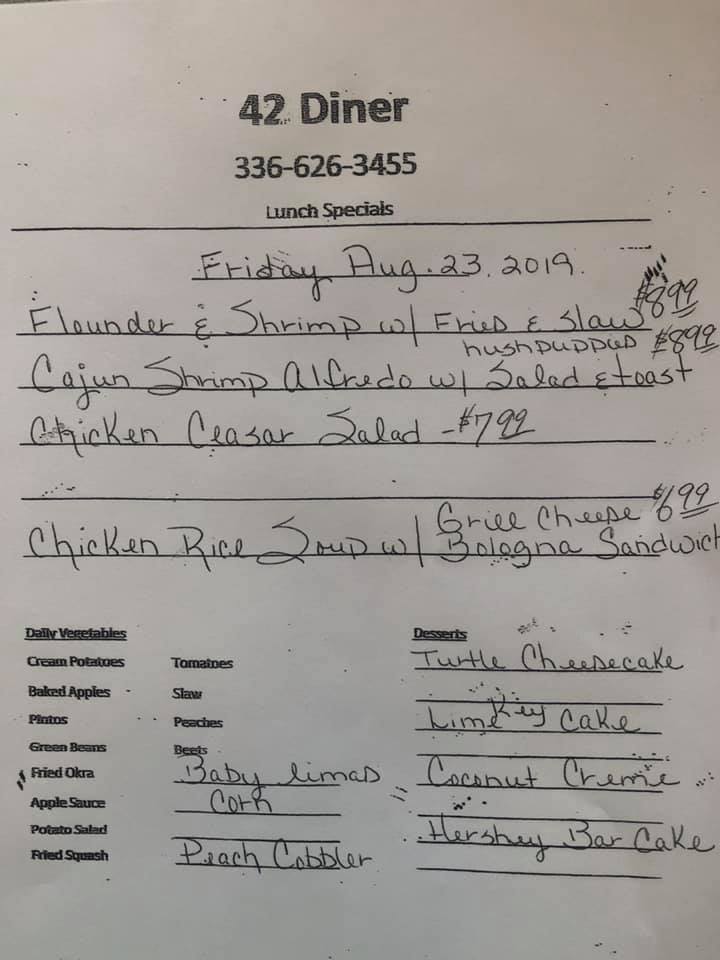 42 Diner
336-626-3455
Lunch Specials
Friday Aug. 23, 2019.
$8.99
Flounder & Shrimp w/ Fries & Slaw
hushpuppies $8.99
Cajun Shrimp Alfredo w/ Salad & toast
Chicken Ceasar Salad - $7.99
Grill Cheese $6.99
Chicken Rice Soup w/ Bologna Sandwich
Daily Vegetables
Cream Potatoes
Baked Apples
Pintos
Green Beans
Fried Okra
Apple Sauce
Potato Salad
Fried Squash
Tomatoes
Slaw
Peaches
Beets
Baby limas
Corn
Peach Cobbler
Desserts
Turtle Cheesecake
Key
Lime Cake
Coconut Creme
Hershey Bar Cake